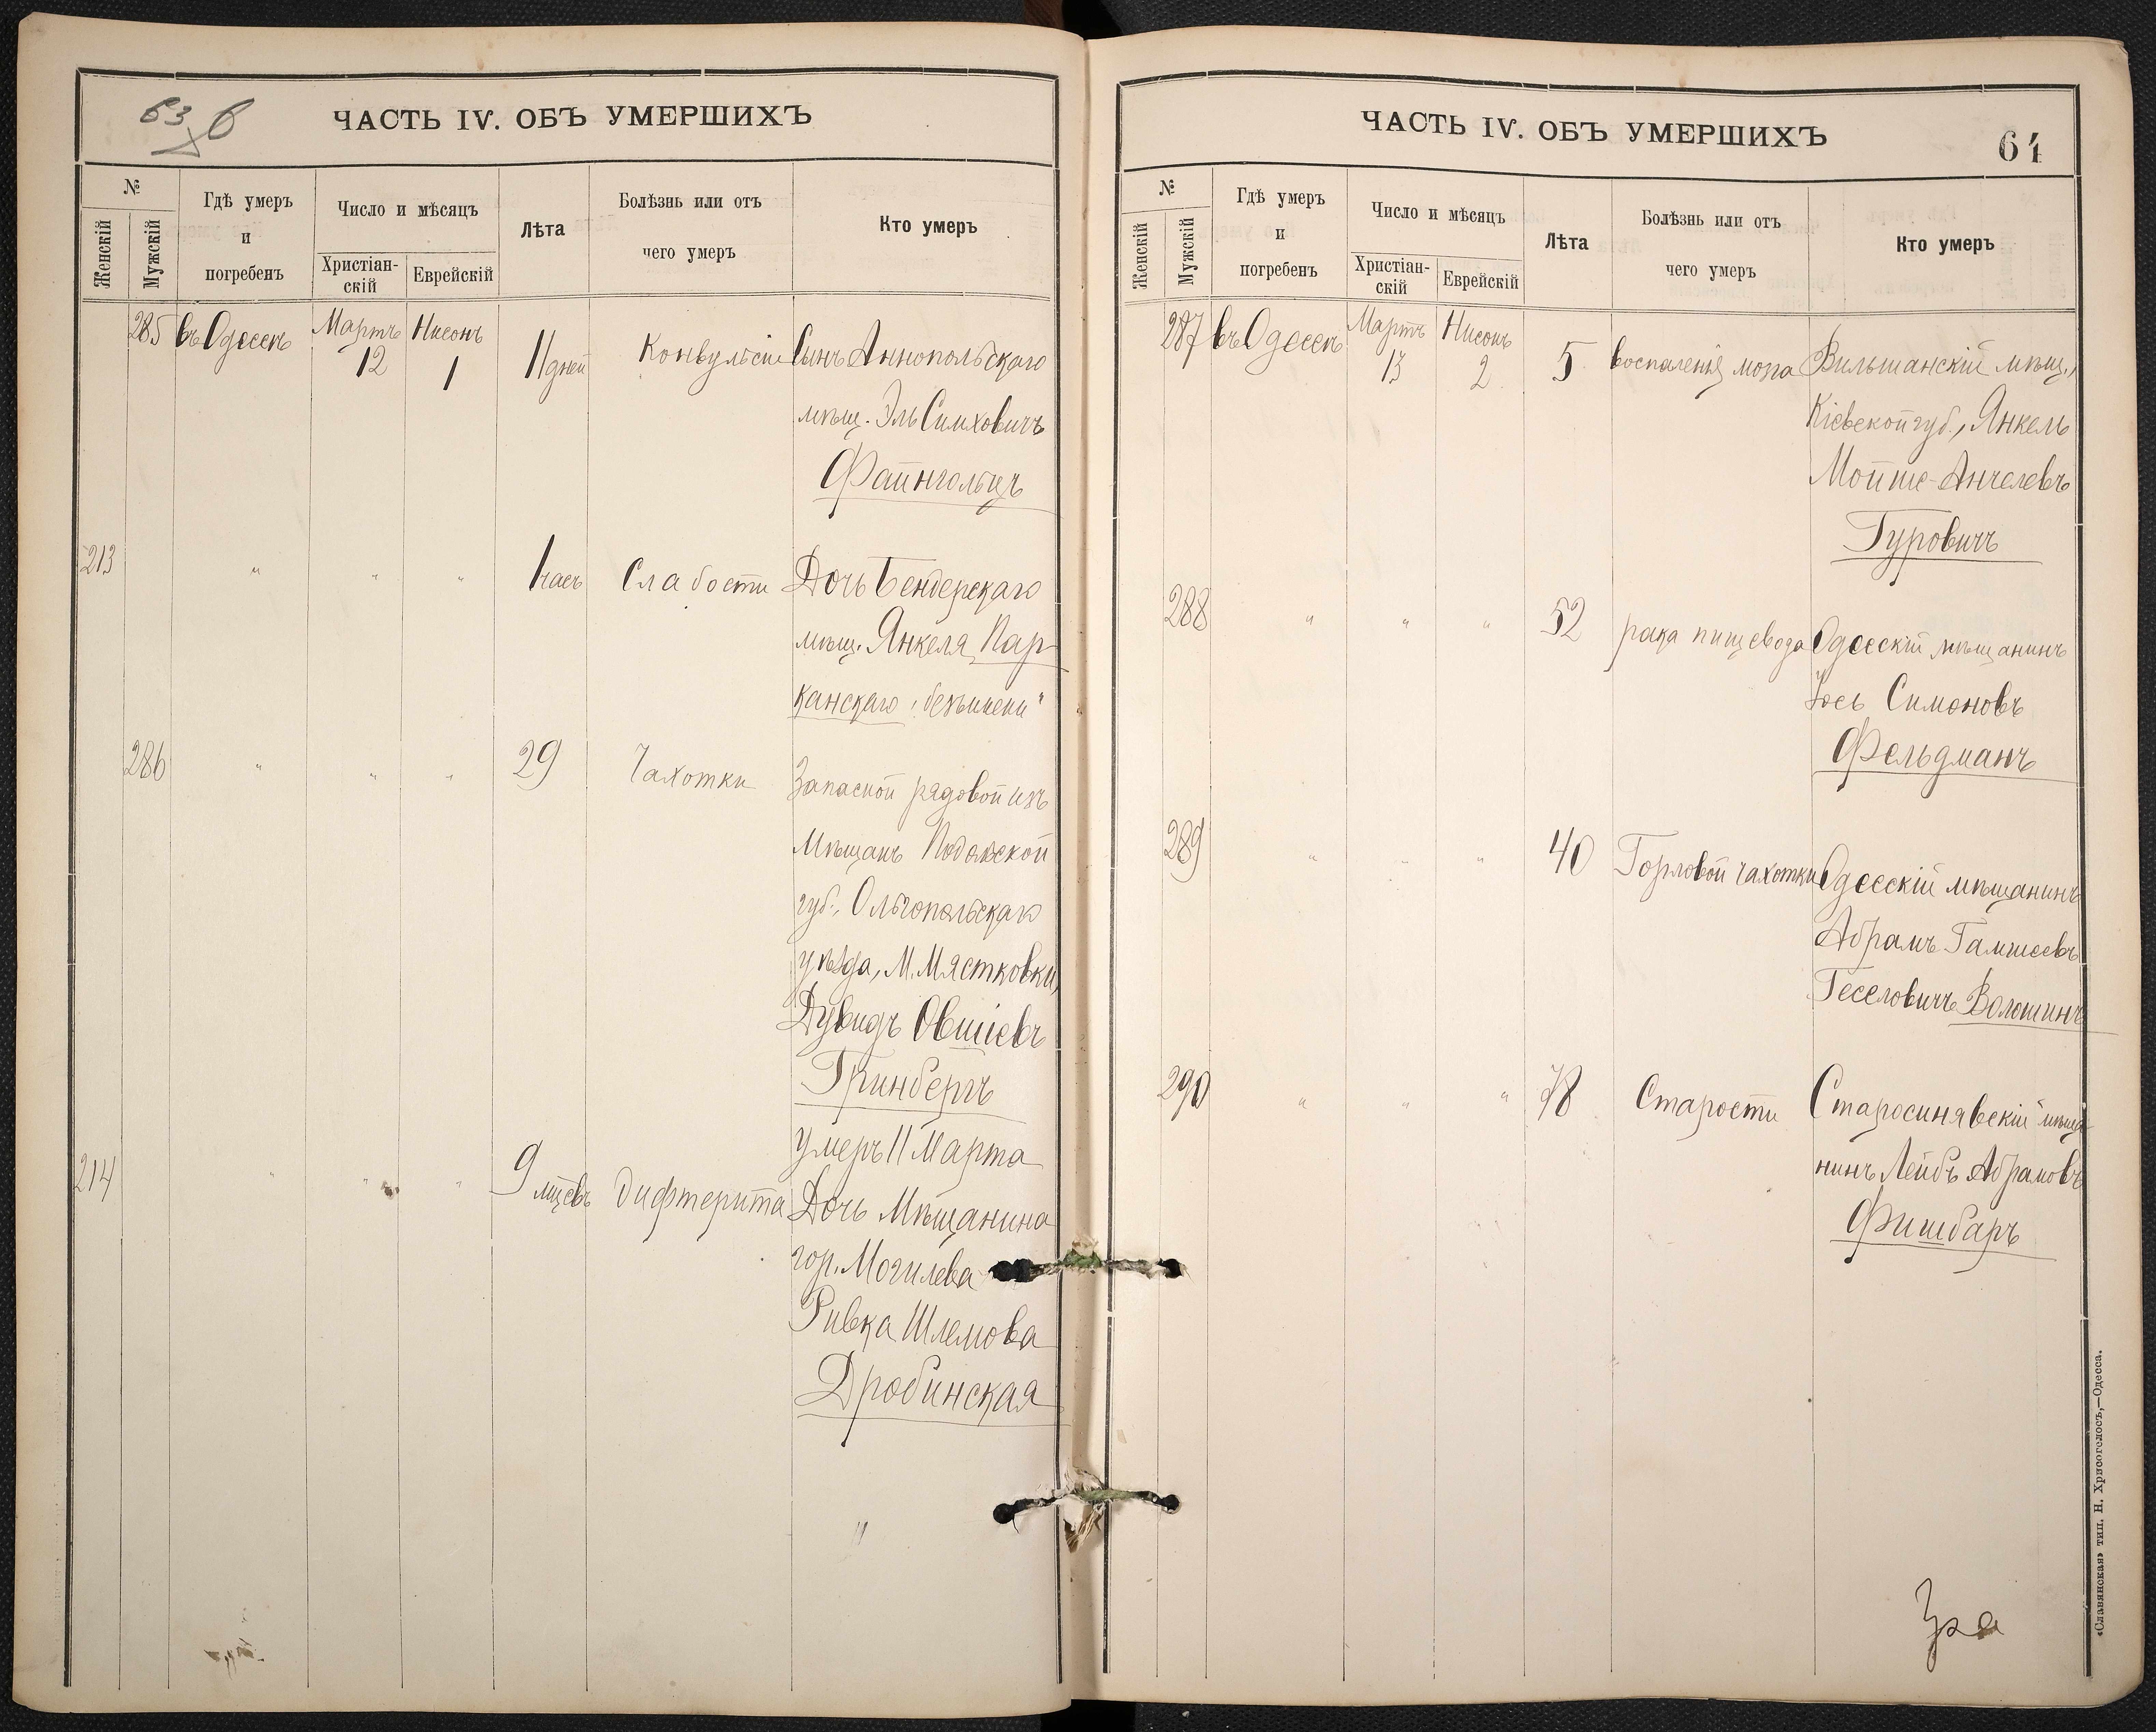 63 в
ЧАСТЬ IV. ОБЪ УМЕРШИХЪ
№
Женскій
Мужскій
Гдѣ умеръ
и
погребенъ
Число и мѣсяцъ
Христіан-
скій
Еврейскій
Лѣта
Болѣзнь или отъ
чего умеръ
Кто умеръ
285 въ Одессѣ Мартъ Нисонъ
12 1 11 дней Конвульсіи Сынъ Аннопольскаго
мѣщ. Эль Симховичъ
Файнгольцъ
213 " " " 1 часъ Слабости Дочь Бендерскаго
мѣщ. Янкеля Пар-
канскаго, „безъимени"
286 " " " 29 Чахотки Запасной рядовой изъ
Мѣщанъ Подольской
губ., Ольгопольскаго
уѣзда, М. Мястковки,
Дувидъ Овшіевъ
Гринбергъ
умеръ 11 Марта
214 " " " 9 мцевъ дифтерита Дочь Мѣщанина
гор. Могилева
Ривка Шлемова
Дробинская
"
ЧАСТЬ IV. ОБЪ УМЕРШИХЪ
64
№
Женскій
Мужскій
Гдѣ умеръ
и
погребенъ
Число и мѣсяцъ
Христіан-
скій
Еврейскій
Лѣта
Болѣзнь или отъ
чего умеръ
Кто умеръ
287 въ Одессѣ Мартъ Нисонъ
13 2 5 воспаленія мозга Вильшанскій мѣщ.,
Кіевской губ., Янкель
Мойше-Анчелевъ
Гуровичъ
288 " " " 52 рака пищевода Одесскій мѣщанинъ
Іось Симоновъ
Фельдманъ
289 " " " 40 Горловой чахотки Одесскій мѣщанинъ
Абрамъ Гамшеевъ
Геселовичъ Волошинъ
290 " " " 78 Старости Старосинявскій мѣща
нинъ Лейбъ Абрамовъ
Фишбаръ
За
«Славянская» тип. Н. Хрисогелосъ,—Одесса.